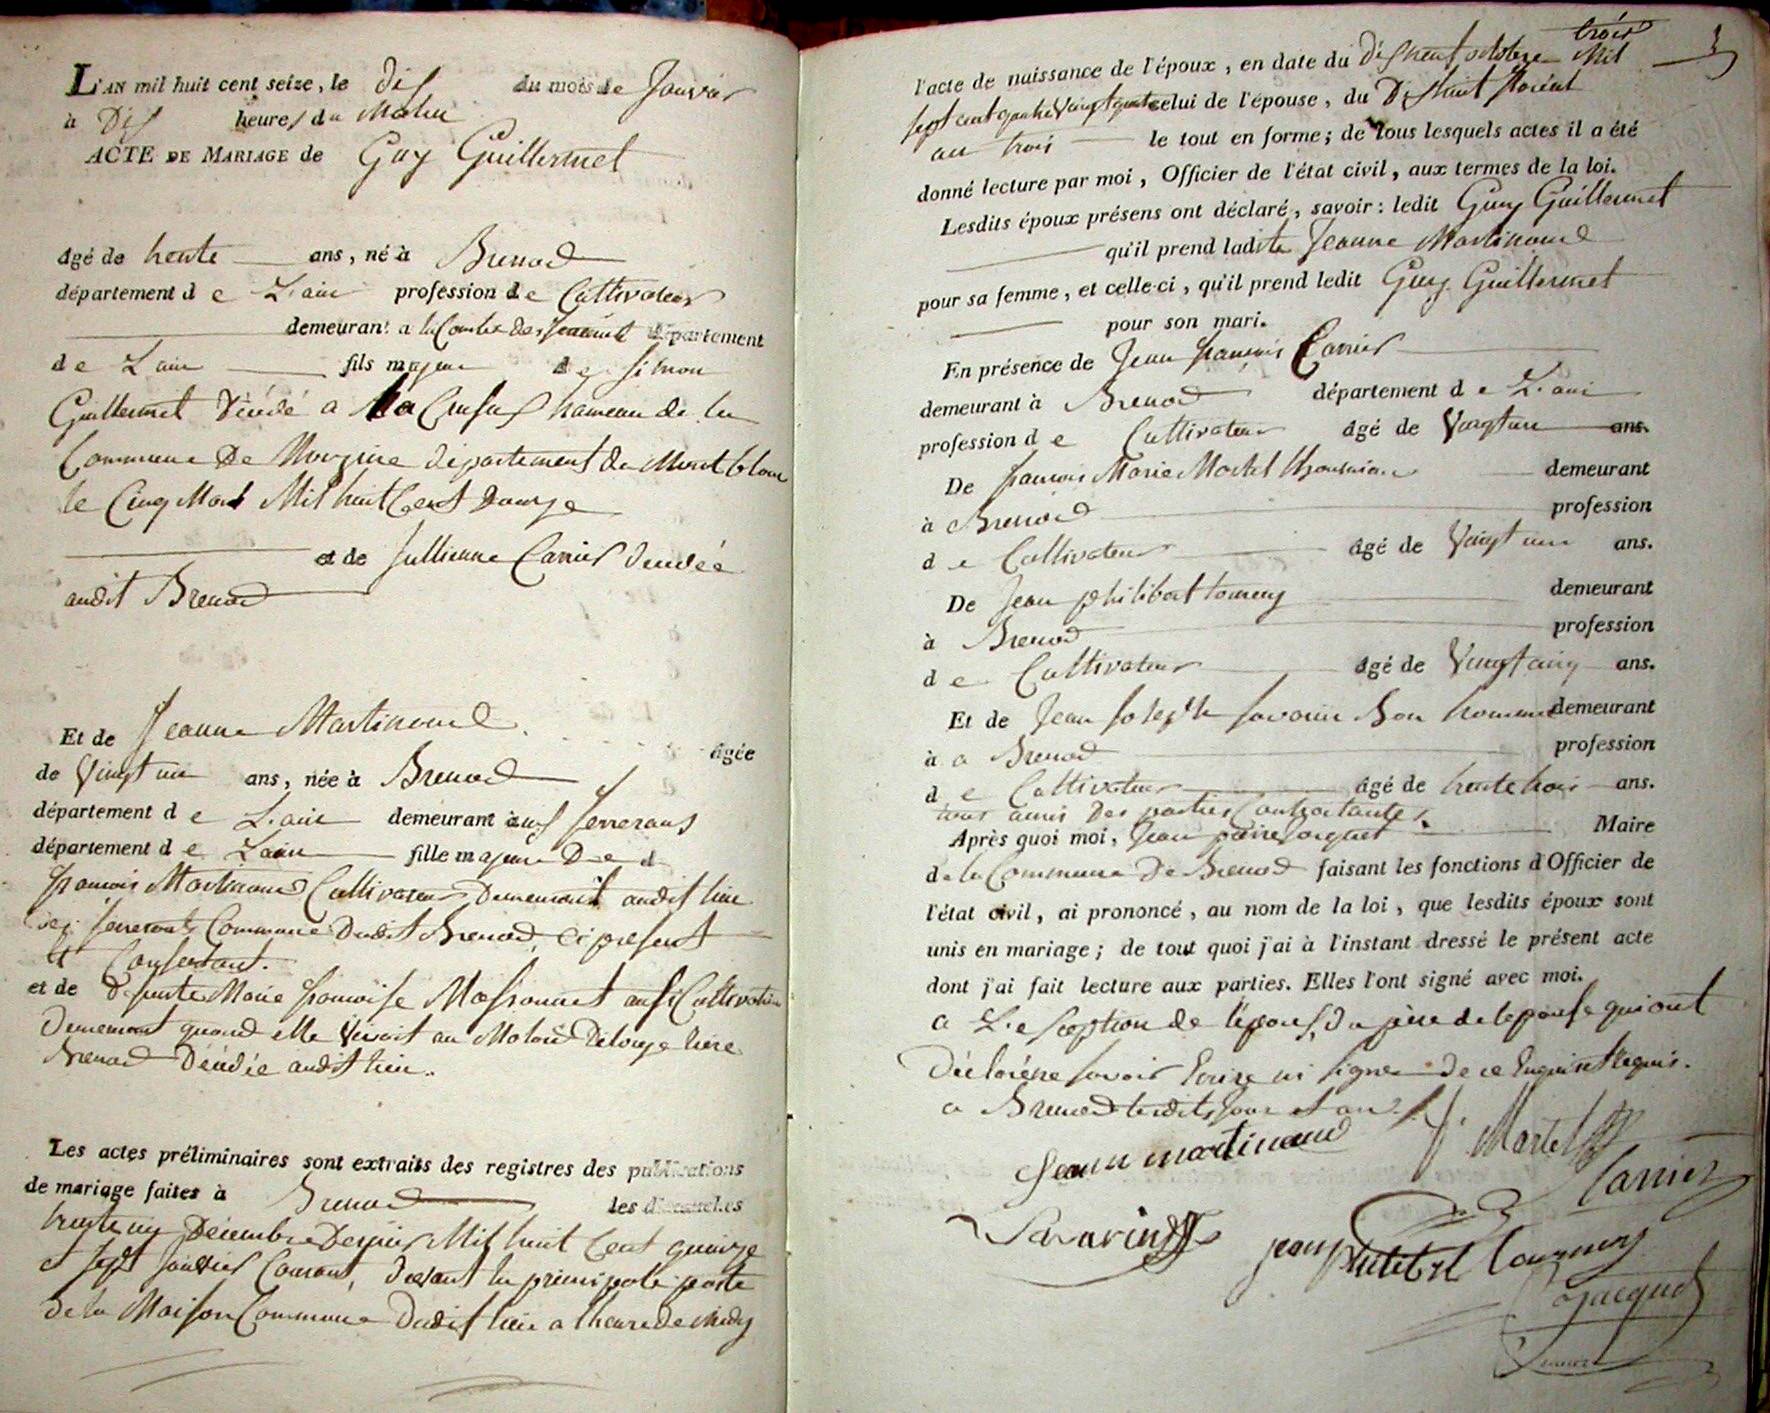 L'AN mil huit cent seize, le Dix du mois de Janvier
à Dix heures du Matin
ACTE DE MARIAGE de Guy Guillermet
âgé de trente ans, né à Brenod
département de L'ain profession de Cultivateur
demeurant a la Combe des département
de L'ain fils majeur de Simon
Guillermet Décédé a hameau de la
Commune De Morzine département du Mont blanc
le Cinq Mars Mil huit Cent Douze
et de Jullienne Carrier Decedée
audit Brenod
Et de Jeanne Martinand âgée
de Vingt un ans, née à Brenod
département de L'ain demeurant aux ferrerans
département de L'ain fille majeure De d
francois Martinand Cultivateur Demeurant audit lieu
des ferrerans Commune Dudit Brenod, Ci present
et Consentant.
et de Defunte Marie francoise Massonnet aussi Cultivatrice
Demeurant quand elle Vivait au
Brenod Décédée audit lieu.
Les actes préliminaires sont extraits des registres des publications
de mariage faites à Brenod les dimanches
trente un Décembre Dernier Mil huit Cent quinze
et sept Janvier Courant, devant la principale porte
de la Maison Commune Dudit lieu a l'heure de Midy
3
trois
l'acte de naissance de l'époux, en date du Dixneuf octobre Mil
sept cent quatre Vingt quatre celui de l'épouse, du Dixhuit floréal
an trois le tout en forme; de tous lesquels actes il a été
donné lecture par moi, Officier de l'état civil, aux termes de la loi.
Lesdits époux présens ont déclaré, savoir: ledit Guy Guillermet
qu'il prend ladite Jeanne Martinand
pour sa femme, et celle-ci, qu'il prend ledit Guy Guillermet
pour son mari.
En présence de Jean francois Carrier
demeurant à Brenod département de L'ain
profession de Cultivateur âgé de Vingt un ans.
De francois Marie Martel demeurant
à Brenod profession
de Cultivateur âgé de Vingt un ans.
De Jean philibert tournery demeurant
à Brenod profession
de Cultivateur âgé de Vingt cinq ans.
Et de Jean Joseph Savarin Bon homme demeurant
à a Brenod profession
de Cultivateur âgé de trente trois ans.
tous amis Des parties Contractantes.
Après quoi moi, Jean pierre Jacquet Maire
de la Commune De Brenod faisant les fonctions d'Officier de
l'état civil, ai prononcé, au nom de la loi, que lesdits époux sont
unis en mariage; de tout quoi j'ai à l'instant dressé le présent acte
dont j'ai fait lecture aux parties. Elles l'ont signé avec moi.
a L'exception de l'epoux, du père de lepouse qui ont
Déclaré ne savoir Ecrire ni signer de ce Enquis et Requis.
a Brenod lesdits jour et an
Jeanne martinand f. Martel
Carrier
Savarin jean philibert tournery
Jacquet